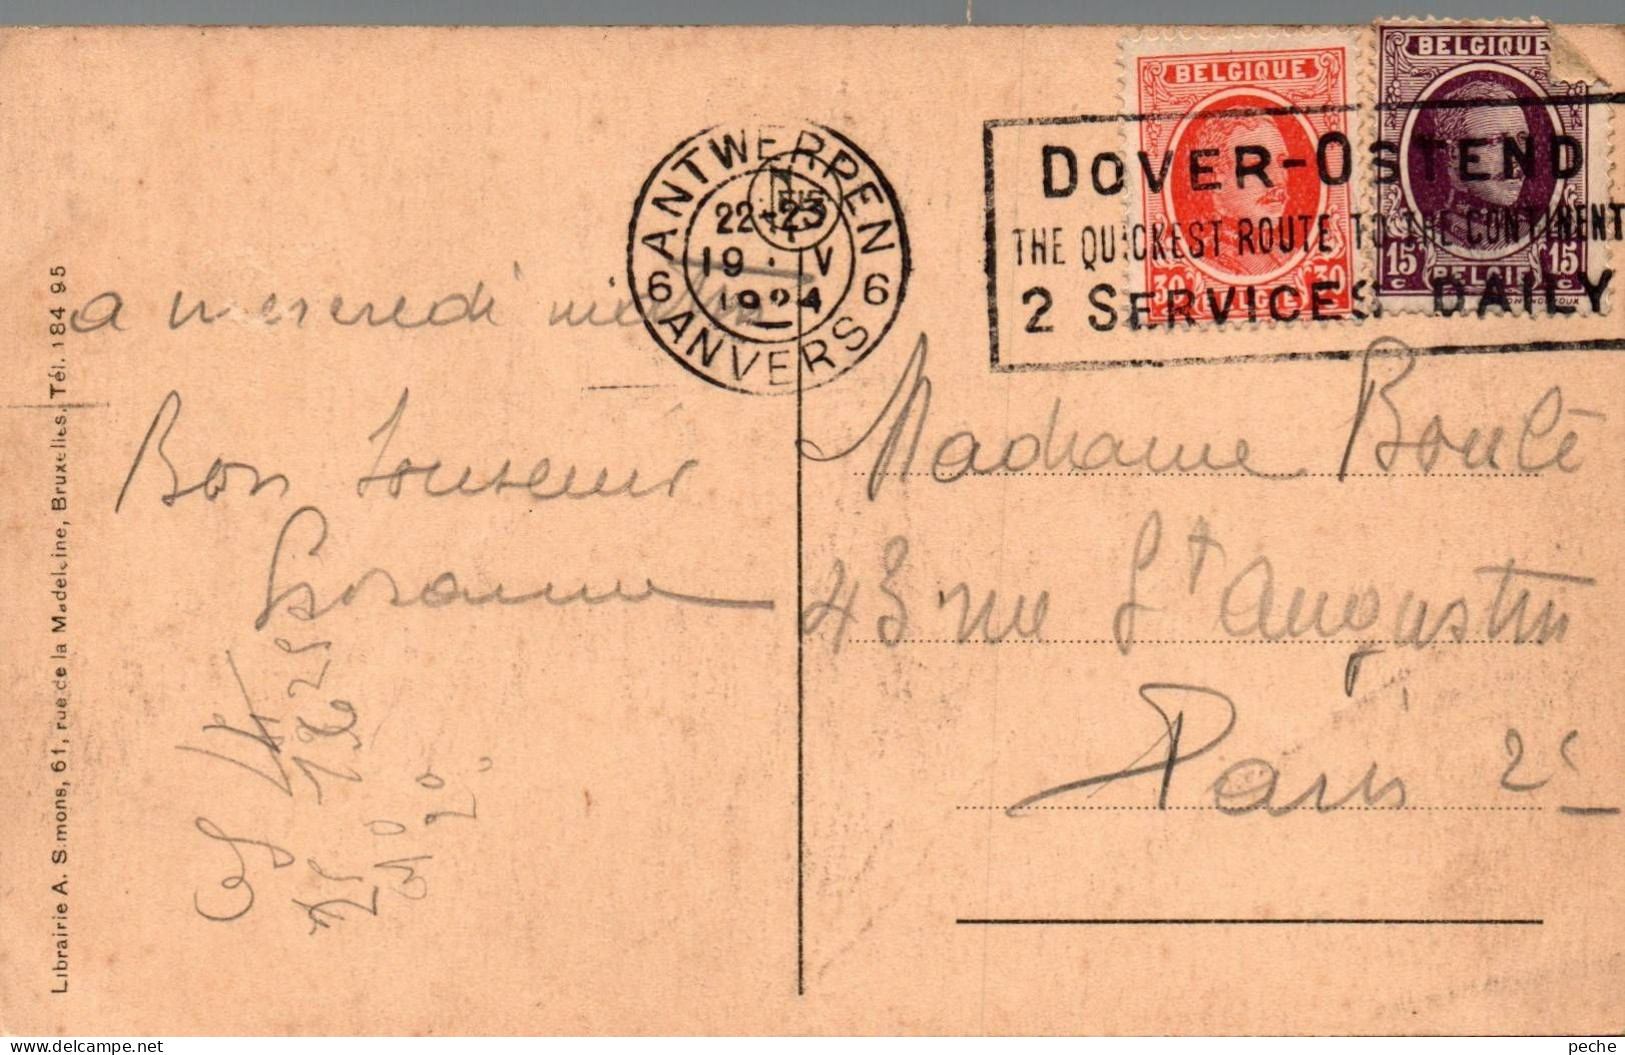 BELGIQUE
30 BELGIE 30
BELGIQUE
15 c BELGIE 15 c
ANTWERPEN
22-23
19 · V
1924
6 ANVERS 6
DOVER-OSTEND
THE QUICKEST ROUTE TO THE CONTINENT
2 SERVICES DAILY
a mercredi
Bon Souvenir
Suzanne
Madame Boulé
43 rue St Augustin
Paris 2e
Librairie A. Simons, 61, rue de la Madeleine, Bruxelles. Tél. 184 95
peche